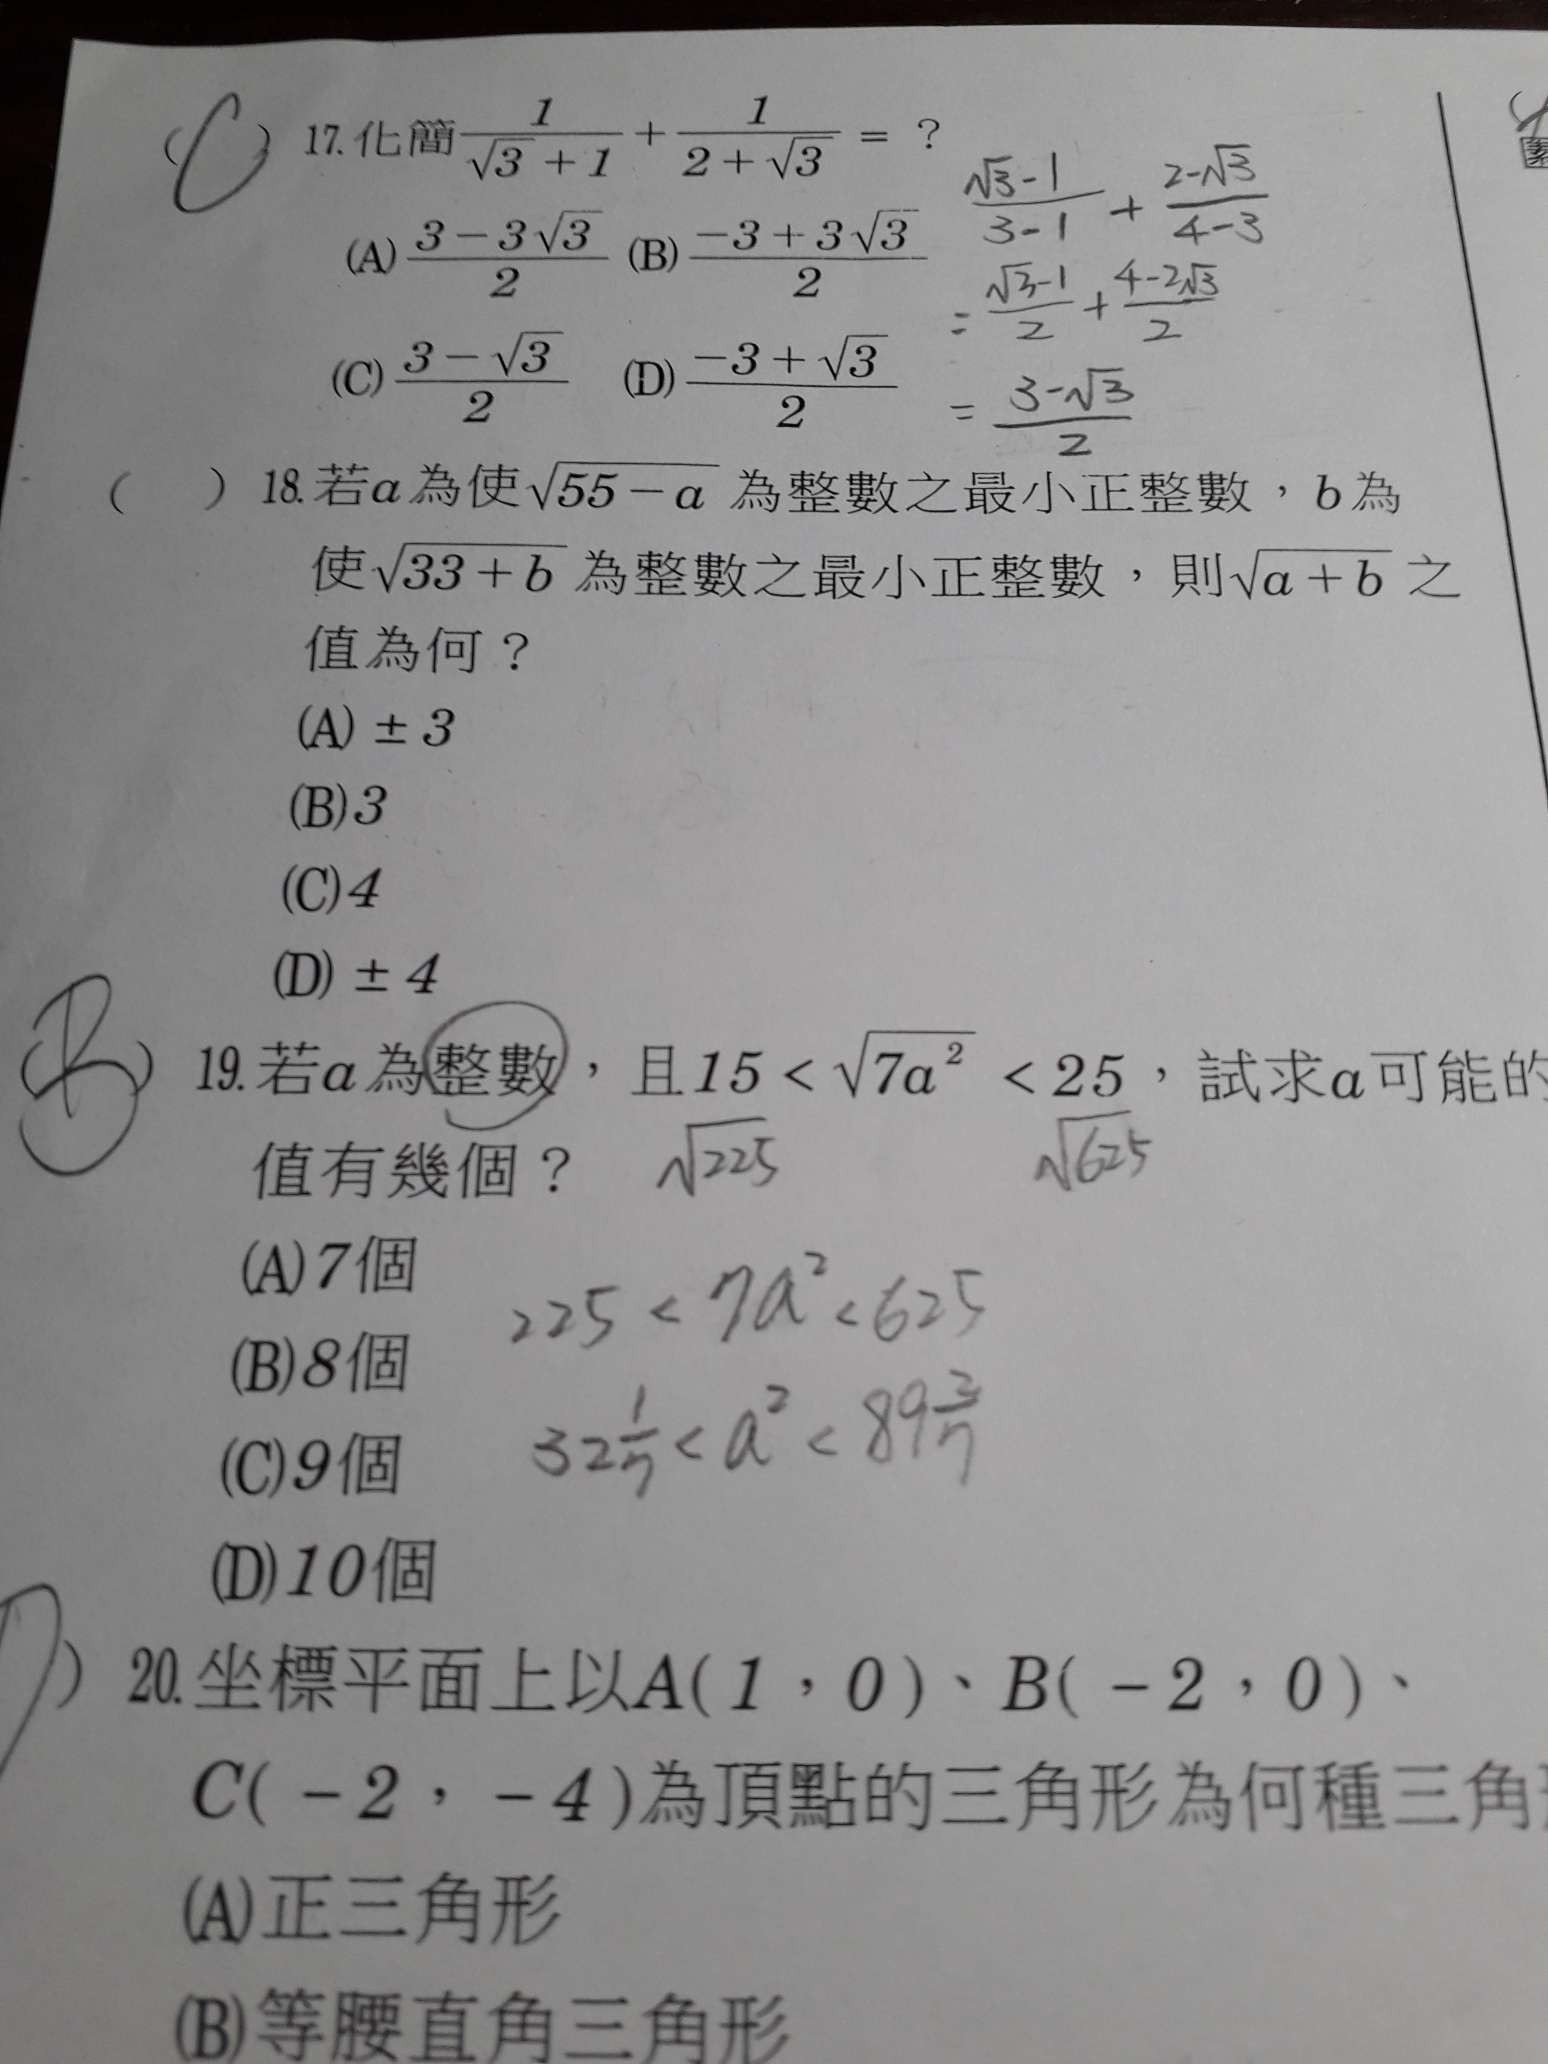 (C) 17.化簡 1/(√3+1) + 1/(2+√3) = ?
(A) (3-3√3)/2 (B) (-3+3√3)/2
(C) (3-√3)/2 (D) (-3+√3)/2
(√3-1)/(3-1) + (2-√3)/(4-3)
= (√3-1)/2 + (4-2√3)/2
= (3-√3)/2
( ) 18.若a為使√(55-a) 為整數之最小正整數，b為
使√(33+b) 為整數之最小正整數，則√(a+b) 之
值為何？
(A) ±3
(B) 3
(C) 4
(D) ±4
(B) 19.若a為整數，且15<√(7a²)<25，試求a可能的
值有幾個？ √225 √625
(A) 7個
(B) 8個
(C) 9個
(D) 10個
225 < 7a² < 625
32 1/7 < a² < 89 2/7
) 20.坐標平面上以A(1，0)、B(-2，0)、
C(-2，-4)為頂點的三角形為何種三角
(A)正三角形
(B)等腰直角三角形